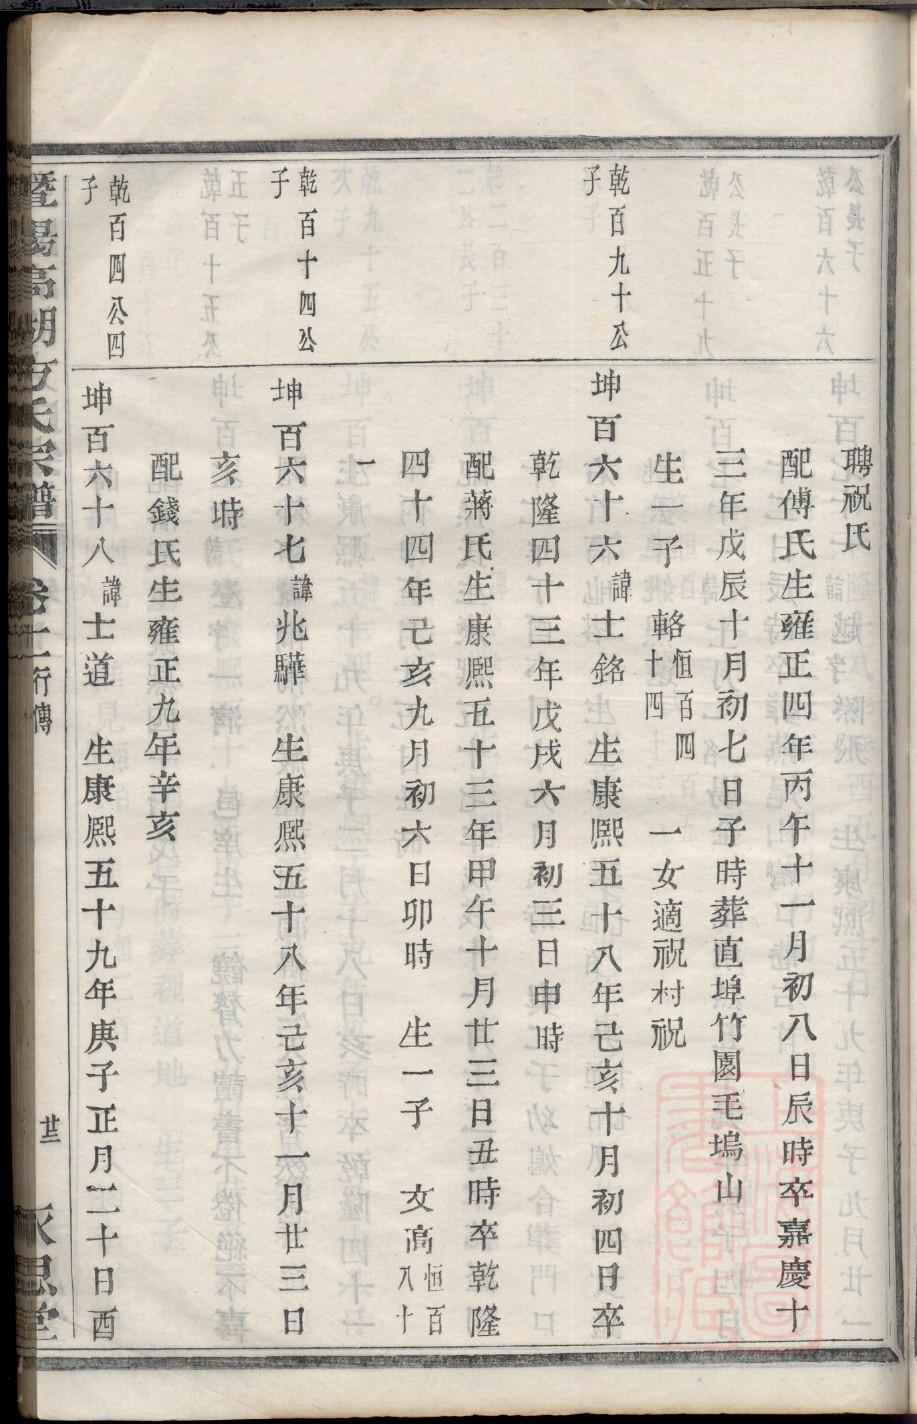 聘祝氏
配傅氏生雍正四年丙午十一月初八日辰時卒嘉慶十
三年戊辰十月初七日子時葬直埠竹園毛塢山
生一子 輅恒百四十四 一女適祝村祝
乾百九十公子
坤百六十六諱士銘 生康熙五十八年己亥十月初四日卒
乾隆四十三年戊戌六月初三日申時
配蔣氏生康熙五十三年甲午十月廿三日丑時卒乾隆
四十四年己亥九月初六日卯時 生一子 文高恒百八十
一
乾百十四公子
坤百六十七諱兆驊 生康熙五十八年己亥十一月廿三日
亥時
配錢氏生雍正九年辛亥
乾百四公四子
坤百六十八諱士道 生康熙五十九年庚子正月二十日酉
暨陽高湖方氏宗譜 卷 行傳 廿二 思堂